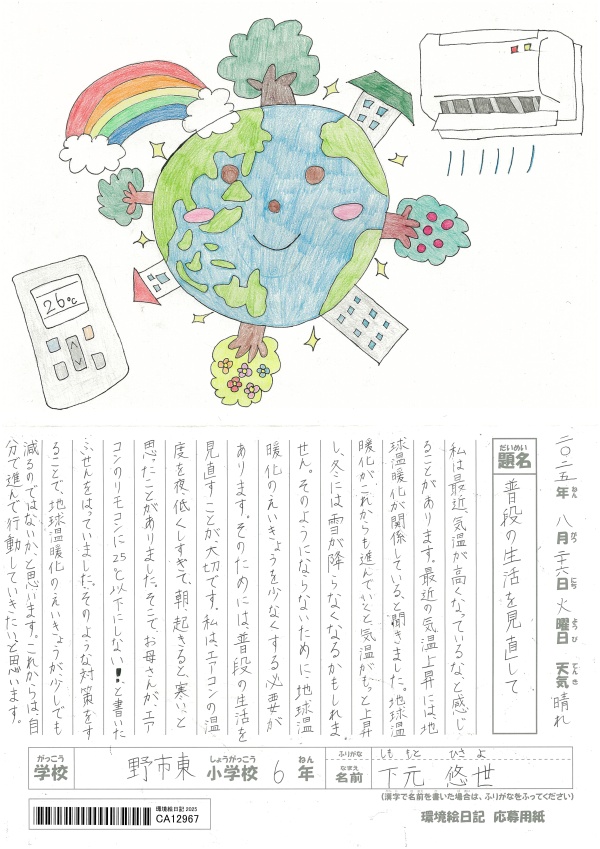 26℃
二〇二五年 八月 二十六日 火曜日 天気 晴れ
ねん がつ にち ようび てんき
だいめい
題名
普段の生活を見直して
私は最近、気温が高くなっているなと感じ
ることがあります。最近の気温上昇には、地
球温暖化が関係していると聞きました。地球温
暖化がこれからも進んでいくと、気温がもっと上昇
し、冬には雪が降らなくなるかもしれま
せん。そのようにならないために、地球温
暖化のえいきょうを少なくする必要が
あります。そのためには、普段の生活を
見直すことが大切です。私は、エアコンの温
度を夜、低くしすぎて、朝、起きると、寒い、と
思ったことがありました。そこで、お母さんが、エア
コンのリモコンに25℃以下にしない!と書いた
ふせんをはっていました。そのような対策をす
ることで、地球温暖化のえいきょうが少しでも
減るのではないか、と思います。これからは、自
分で進んで行動していきたいと思います。
がっこう
学校
野市東
しょうがっこう
小学校
6
ねん
年
ふりがな
しももと ひさよ
なまえ
名前
下元 悠世
(漢字で名前を書いた場合は、ふりがなをふってください)
環境絵日記 2025
CA12967
環境絵日記 応募用紙